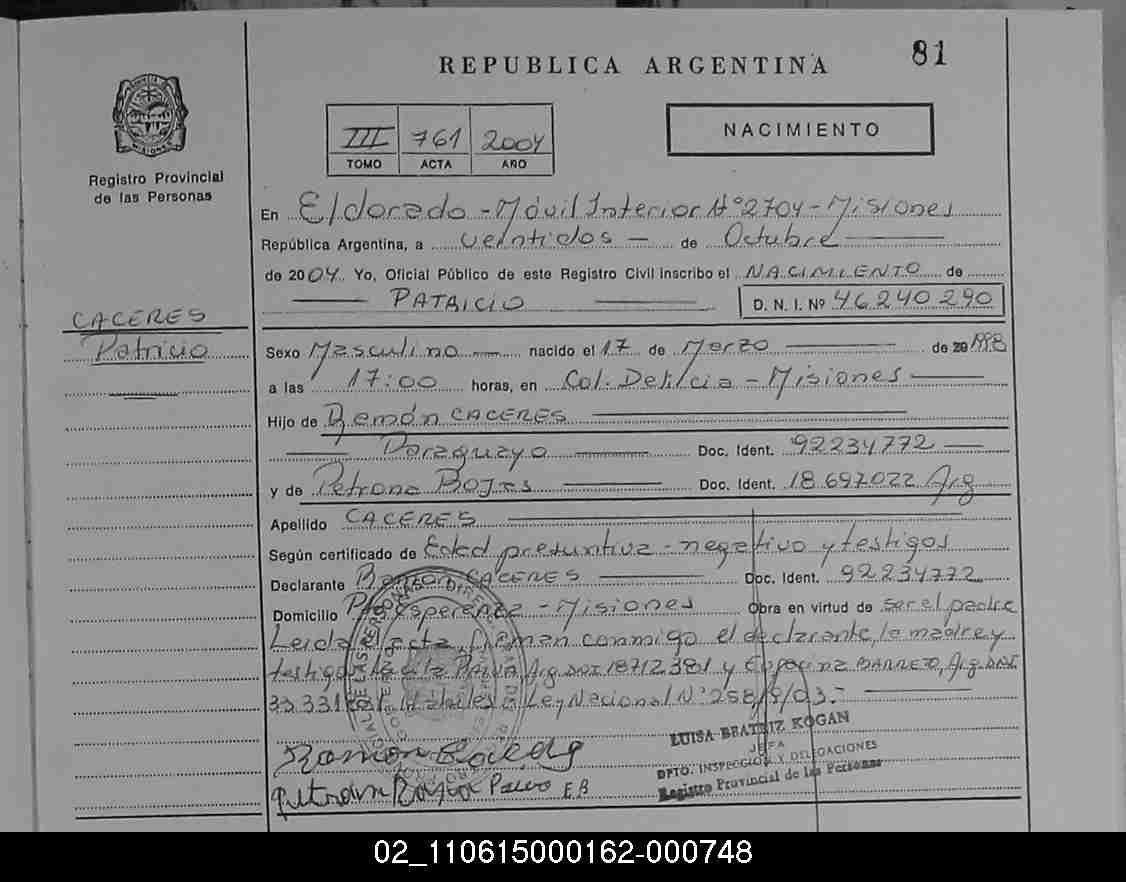 81
REPUBLICA ARGENTINA
MISIONES
Registro Provincial
de las Personas
III 761 2004
TOMO ACTA AÑO
NACIMIENTO
En Eldorado - Móvil Interior Nº 2704 - Misiones
República Argentina, a veintidos - de Octubre
de 2004 Yo, Oficial Público de este Registro Civil inscribo el NACIMIENTO de
PATRICIO D. N. I. Nº 46240290
CACERES
Patricio
Sexo Masculino nacido el 17 de Marzo de 20 1998
a las 17:00 horas, en Col. Delicia - Misiones
Hijo de Ramón CACERES
Paraguayo Doc. Ident. 92234772
y de Petrona ROJAS Doc. Ident. 18.697.022 Arg
Apellido CACERES
Según certificado de Edad presuntiva - negativo y testigos
Declarante Ramón CACERES Doc. Ident. 92234772
Domicilio Pto Esperanza - Misiones Obra en virtud de ser el padre
Leida el acta, firman conmigo el declarante, la madre y
testigos PAIVA, Arg DNI 18712381 y BARRETO, Arg. DNI
33.331 Hábiles Ley Nacional Nº 25819/03.-
LUISA BEATRIZ KOGAN
JEFA
DPTO. INSPECCION Y DELEGACIONES
Registro Provincial de las Personas
Ramon
E B
02_110615000162-000748